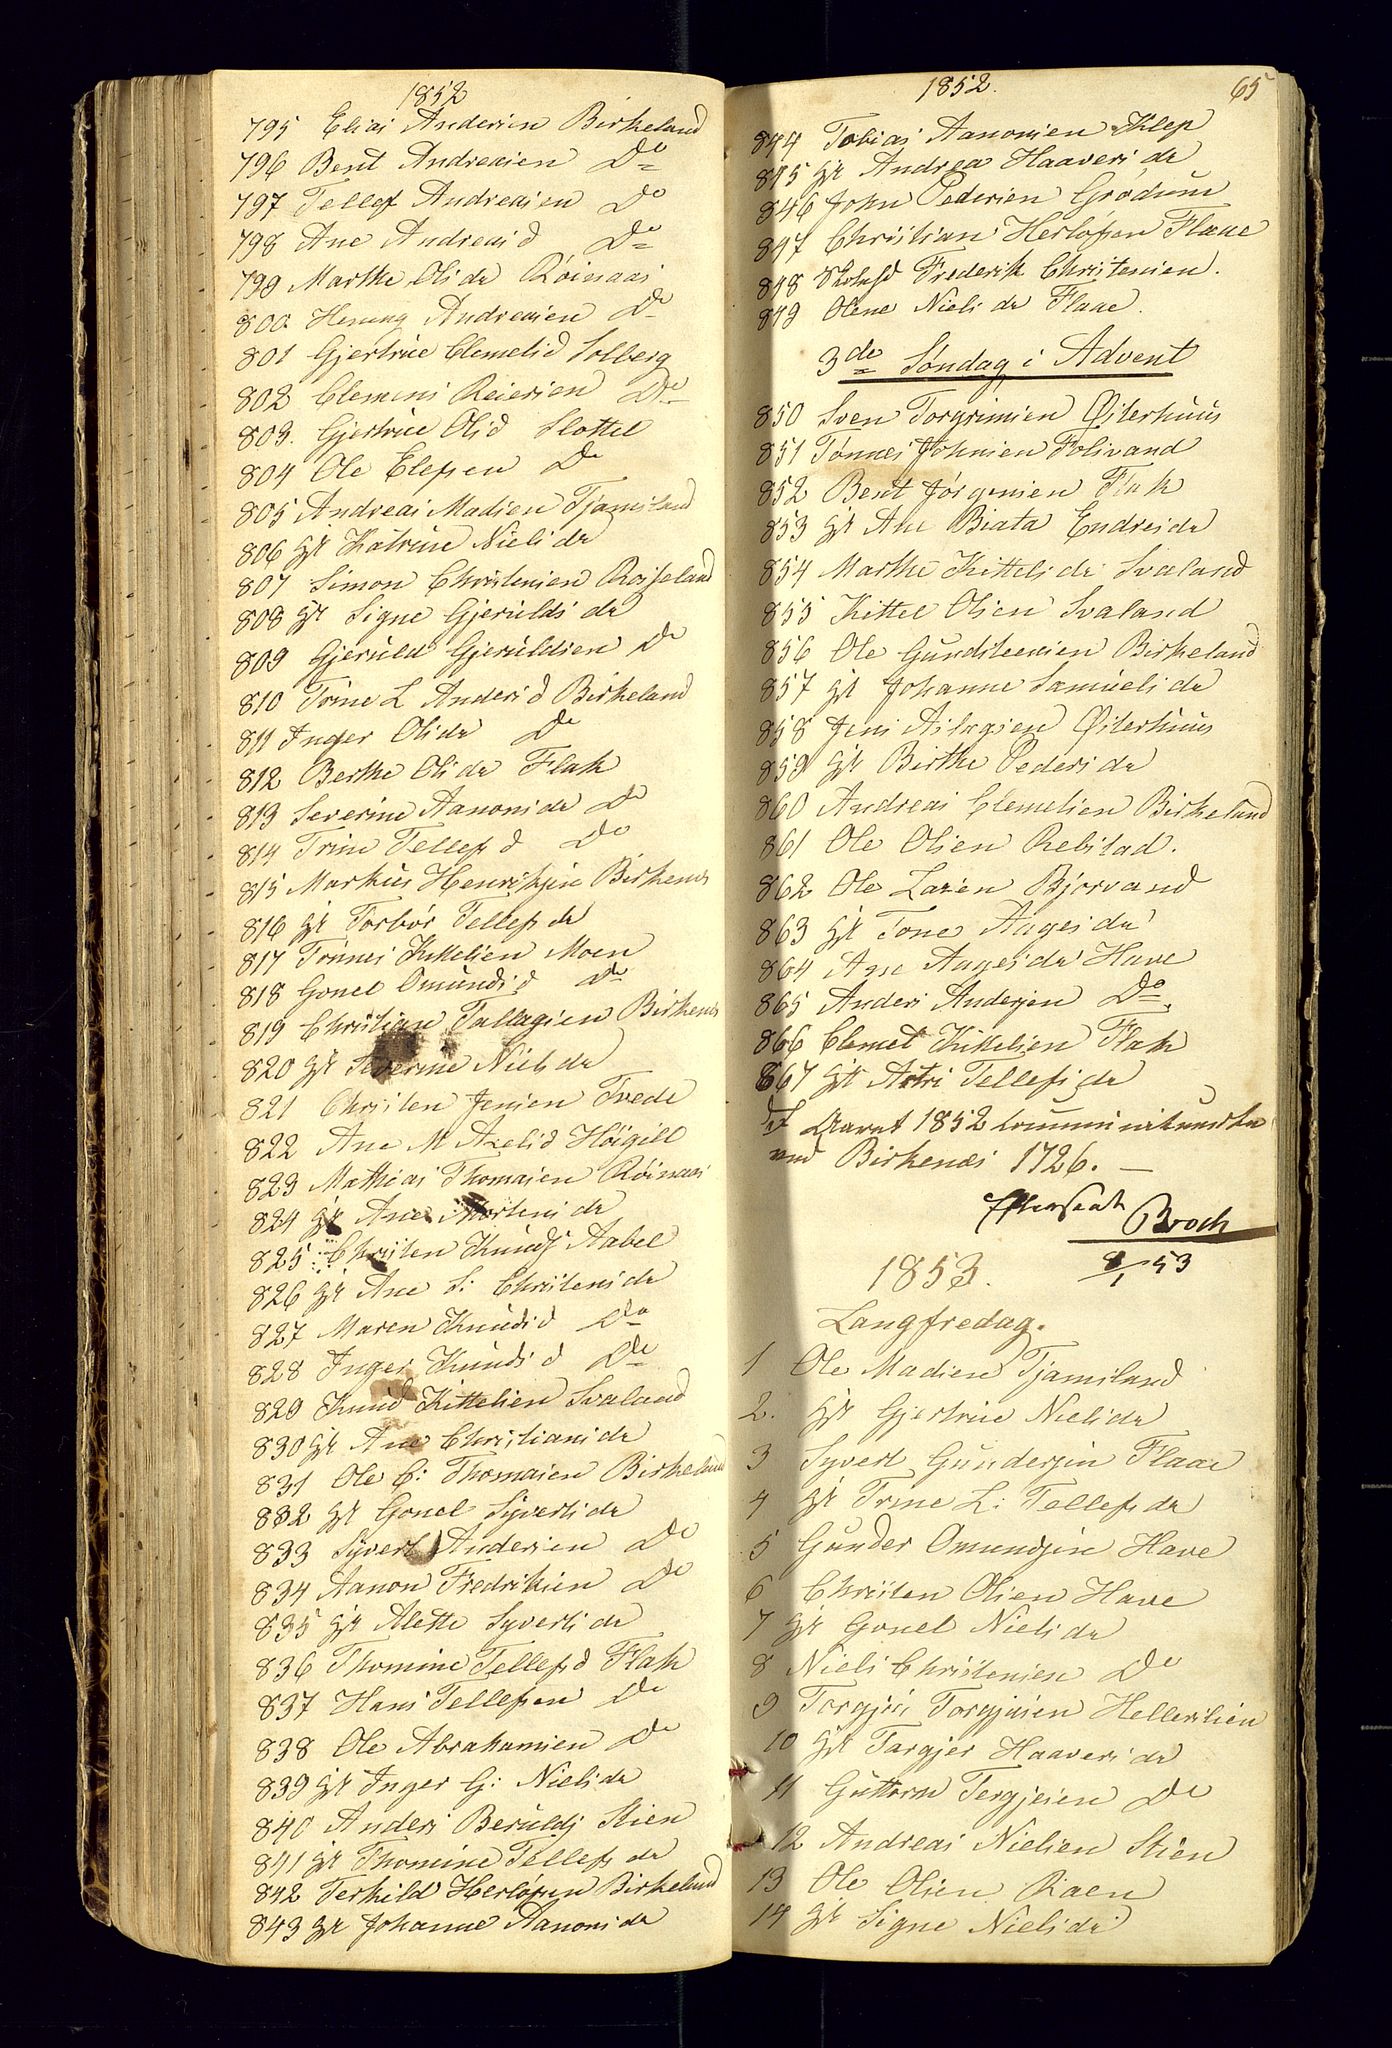 1852
795 Elias Andersen Birkeland
796 Bent Andreasen Do
797 Tellef Andreasen Do
798 Ane Andreasd Do
799 Marthe Olsdr Röienaas
800 Andreasen Do
801 Gjertrue Clemetsd Solberg
802 Clemens Reiersen Do
803. Gjertrue Olsd Slottet
804 Ole Elefsen Do
805 Andreas Madsen Tjamsland
806 Hr Katrine Nielsdr
807 Simon Christensen Roiseland
808 Hr Signe Gjeruldsdr
809 Gjeruld Gjeruldsen Do
810 Trine L Andersd Birkeland
811 Inger Olsdr Do
812 Berthe Olsdr Flak
813 Severine Aanonsdr Do
814 Trine Tellefsd Do
815 Markus Henriksen Birkenes
816 Hr Torbör Tellefsdr
817 Tönnes Kittelsen Moen
818 Gonel Omundsd Do
819 Christian Tallagsen Birkenes
820 Hr Severine Nielsdr
821 Christen Jensen Tvede
822 Ane M Axelsd Höigilt
823 Mathias Thomasen Röinaas
824 Hr Ane Mortensdr
825 Christen Knuds Aabel
826 Hr Ane S: Christensdr
827 Maren Knudsd Do
828 Inger Knudsd Do
829 Knud Kittelsen Svaland
830 Hr Ane Christiansdr
831 Ole C: Thomasen Birkeland
832 Hr Gonel Syvertsdr
833 Syvert Andersen Do
834 Aanon Fredriksen Do
835 Hr Alette Syvertsdr
836 Thomine Tellefsd Flak
837 Hans Tellefsen Do
838 Ole Abrahamsen Do
839 Hr Inger G: Nielsdr
840 Anders Beruldj Stien
841 Hr Thomine Tellefsdr
842 Terkild Herlöfsen Birkeland
843 Hr Johanne Aanonsdr
1852. 65
844 Tobias Aanonsen Klep
845 Hr Andrea Haaversdr
846 John Pedersen Grödum
847 Christian Herlöfsen Flaae
848 Skolehd Frederik Christensen.
849 Olene Nielsdr Flaae.
3de Søndag i Advent
850 Sven Torgrimsen Østerhuus
851 Tønnes Johnsen Folivand
852 Bent Jörgensen Flak
853 Hr Ane Biata Endresdr
854 Marthe Kittelsdr Svaland
855 Kittel Olsen Svaland
856 Ole Gundsteensen Birkeland
857 Hr Johanne Samuelsdr
858 Jens Aslagsen Østerhuus
859 Hr Birthe Pedersdr
860 Andreas Clemetsen Birkeland
861 Ole Olsen Rebstad.
862 Ole Larsen Bjorvand
863 Hr Tone Aagesdr
864 Ane Aagesdr Have
865 Anders Andersen Do.
866 Clemet Kittelsen Flak
867 Hr Astri Tellefsdr
Aaret 1852 communicerede
ved Birkenes 1726. —
Efterseet Broch
8/1 53
1853.
Langfredag.
1 Ole Madsen Tjamsland
2. Hr Gjertrue Nielsdr
3 Syvert Gundersen Flaae
4 Hr Trine L: Tellefsdr
5 Gunder Omundsen Have
6 Christen Olsen Have
7 Hr Gonel Nielsdr
8 Niels Christensen Do
9 Torgjus Torgjusen Hellerslien
10 Hr Targjer Haaversdr
11 Guttorm Tergjesen Do
12 Andreas Nielsen Stien
13 Ole Olsen Raen
14 Hr Signe Nielsdr